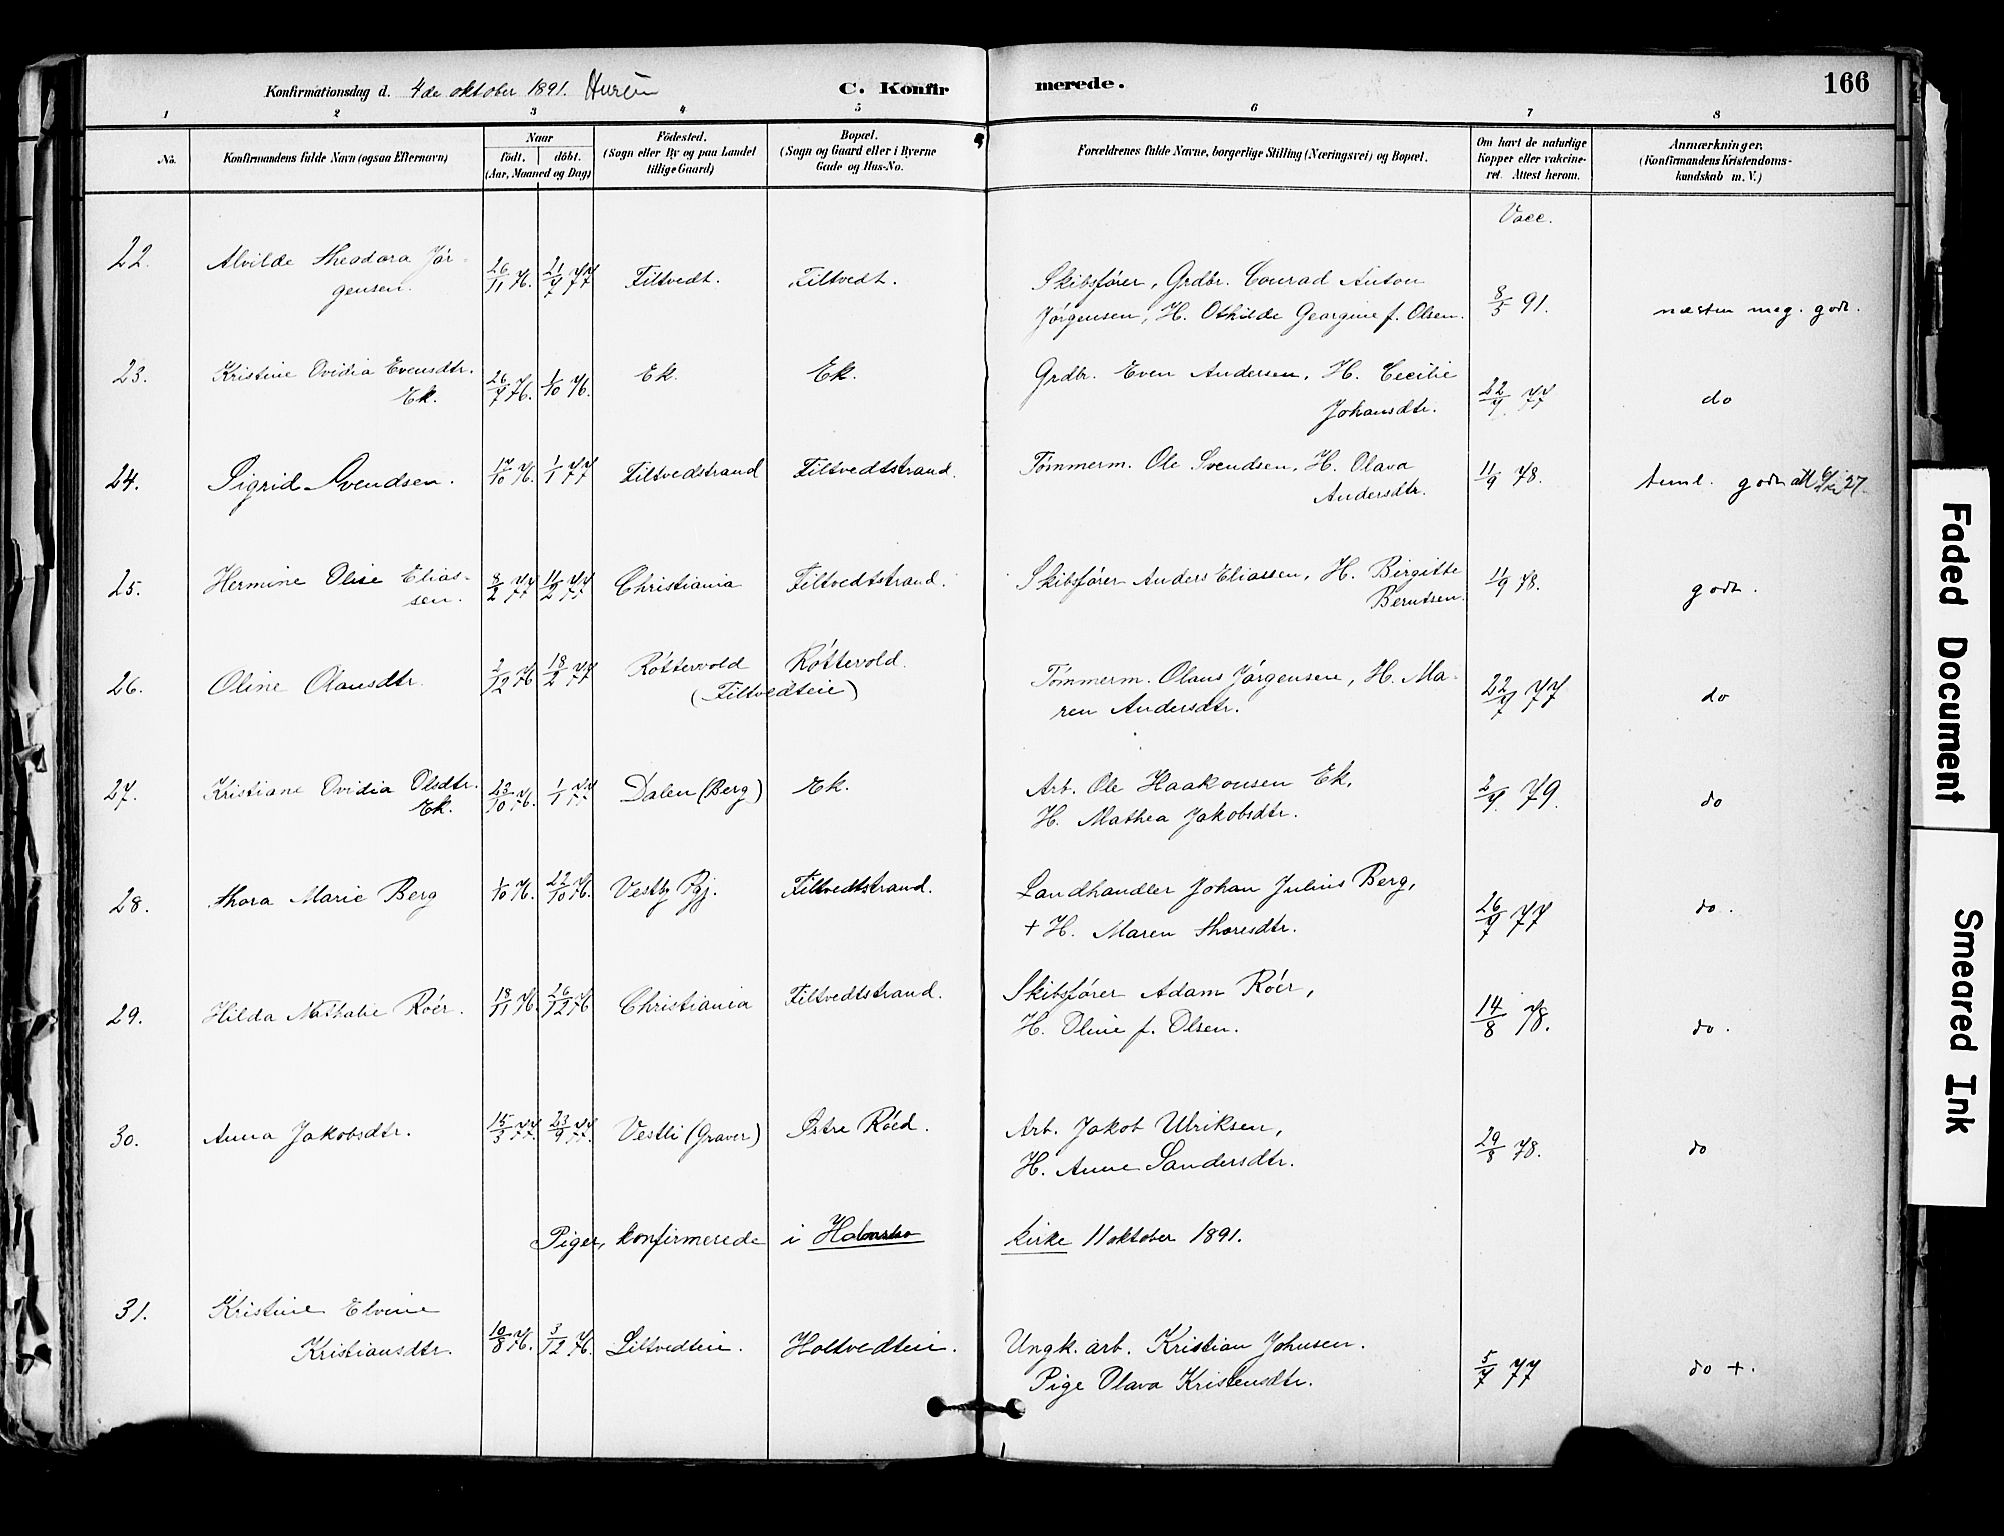 Konfirmationsdag d. 4de oktober 1891. Hurum
C. Konfirmerede.
166
1 2 3 4 5 6 7 8
No.
Konfirmandens fulde Navn (ogsaa Efternavn)
Naar
födt. döbt.
(Aar, Maaned og Dag)
Födested.
(Sogn eller By og paa Landet
tillige Gaard)
Bopæl.
(Sogn og Gaard eller i Byerne
Gade og Hus-No.
Forældrenes fulde Navne, borgerlige Stilling (Næringsvei) og Bopæl.
Om havt de naturlige
Kopper eller vakcine-
ret. Attest herom.
Anmærkninger.
(Konfirmandens Kristendoms-
kundskab m. V.)
Vacc.
22. Alvilde Theodora Jör-
gensen. 26/11 76. 21/7 77 Filtvedt. Filtvedt. Skibsförer, Grdbr. Conrad Anton
Jörgensen, H. Othilde Georgine f. Olsen. 8/5 91. næsten meg. godt.
23. Kristine Ovidia Evensdtr.
Ek. 26/7 76. 1/10 76. Ek. Ek. Grdbr. Even Andersen, H. Cecilie
Johansdtr. 22/7 77 do
24. Sigrid Svendsen. 17/10 76. 1/1 77 Filtvedstrand Filtvedtstrand. Tømmerm. Ole Svendsen, H. Olava
Andersdtr. 11/9 78. teml. godt att 27.
25. Hermine Olise Elias-
sen. 8/2 77 11/2 77 Christiania Filtvedtstrand. Skibsförer Anders Eliassen, H. Birgitte
Berntsen. 11/9 78. godt.
26. Oline Olausdtr. 2/12 76 18/2 77 Röttervold Röttervold.
(Filtvedteie) Tømmerm. Olaus Jørgensen, H. Ma-
ren Andersdtr. 22/7 77 do
27. Kristiane Ovidia Olsdtr.
Ek. 23/10 76. 1/1 77 Dalen (Berg) Ek. Arb. Ole Haakonsen Ek,
H. Mathea Jakobsdtr. 2/7 79. do
28. Thora Marie Berg 1/10 76. 22/10 76. Vestby Pgj. Filtvedtstrand. Landhandler Johan Julius Berg,
+ H. Maren Thoresdtr. 26/7 77 do.
29. Hilda Nathalie Röer. 18/11 76. 26/12 76 Christiania Filtvedtstrand. Skibsförer Adam Röer,
H. Oline f. Olsen. 14/8 78. do.
30. Anna Jakobsdtr. 15/3 77. 23/9 77. Vestli (Graver) Östre Röed. Arb. Jakob Ulriksen,
H. Anne Sandersdtr. 29/8 78. do
Piger, konfirmerede i Holmsbo kirke 11 oktober 1891.
31. Kristine Elvine
Kristiansdtr. 10/8 76. 3/12 76. Liltvedteie. Holtvedteie. Ungk. arb. Kristian Johnsen.
Pige Olava Kristensdtr. 5/7 77 do +.
Faded Document
Smeared Ink